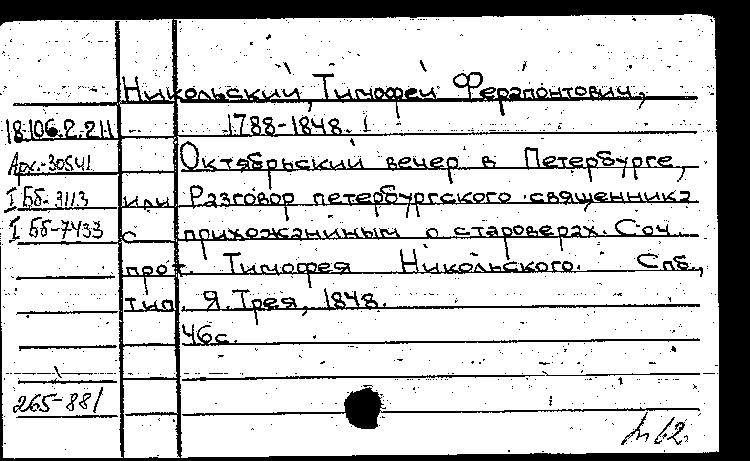 Никольский, Тимофей Ферапонтович,
18.106.2.211 1788-1848.
Арх.-30541 Октябрьский вечер в Петербурге,
I Бб-3113 или Разговор петербургского священника
I Бб-7433 с прихожанином о староверах. Соч.
прот. Тимофея Никольского. Спб.,
тип. Я. Трея, 1848.
46с.
265-881
62.